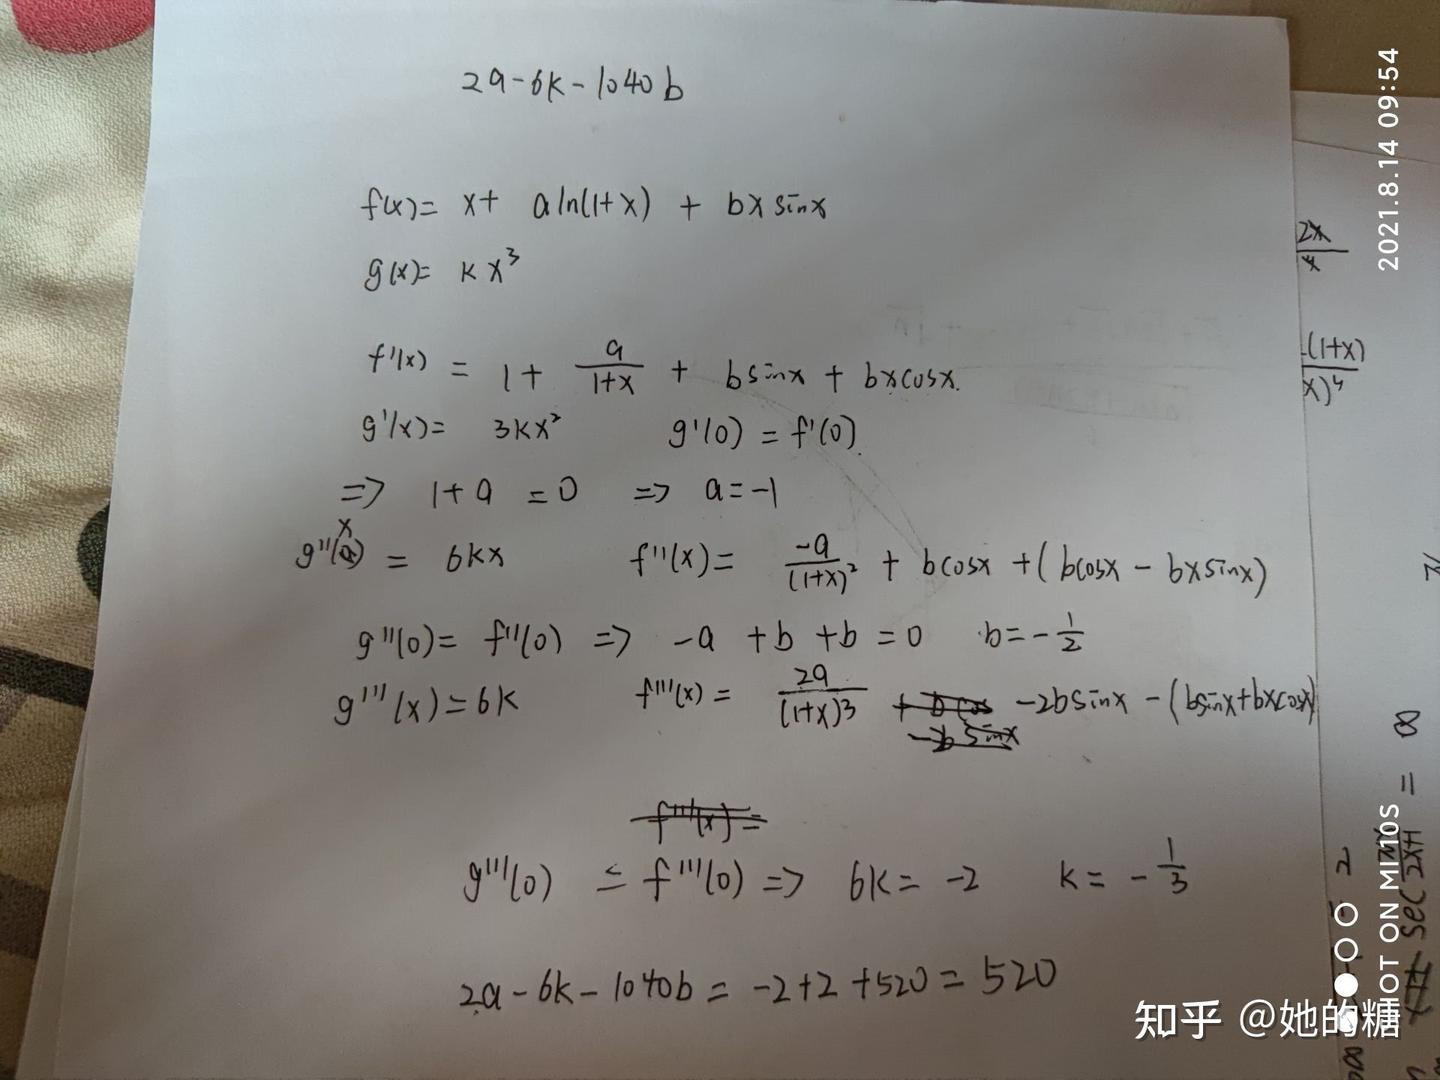 2a-6k-1040b
f(x)= x+ aln(1+x) + bx sinx
g(x)= kx³
f'(x) = 1+ a/(1+x) + bsinx + bxcosx.
g'(x)= 3kx² g'(0) = f'(0).
=> 1+a =0 => a=-1
g''(x) = 6kx f''(x)= -a/(1+x)² + bcosx +(bcosx - bxsinx)
g''(0)= f''(0) => -a +b +b =0 b=-1/2
g'''(x)=6k f'''(x) = 2a/(1+x)³ -2bsinx -(bsinx+bxcosx)
f'''(x) =
g'''(0) = f'''(0) => 6k= -2 k= -1/3
2a-6k-1040b = -2+2+520=520
2x/4
-(1+x)
x)⁴
= ∞
sec
2x+1
2
2021.8.14 09:54
SHOT ON MI 10S
知乎 @她的糖